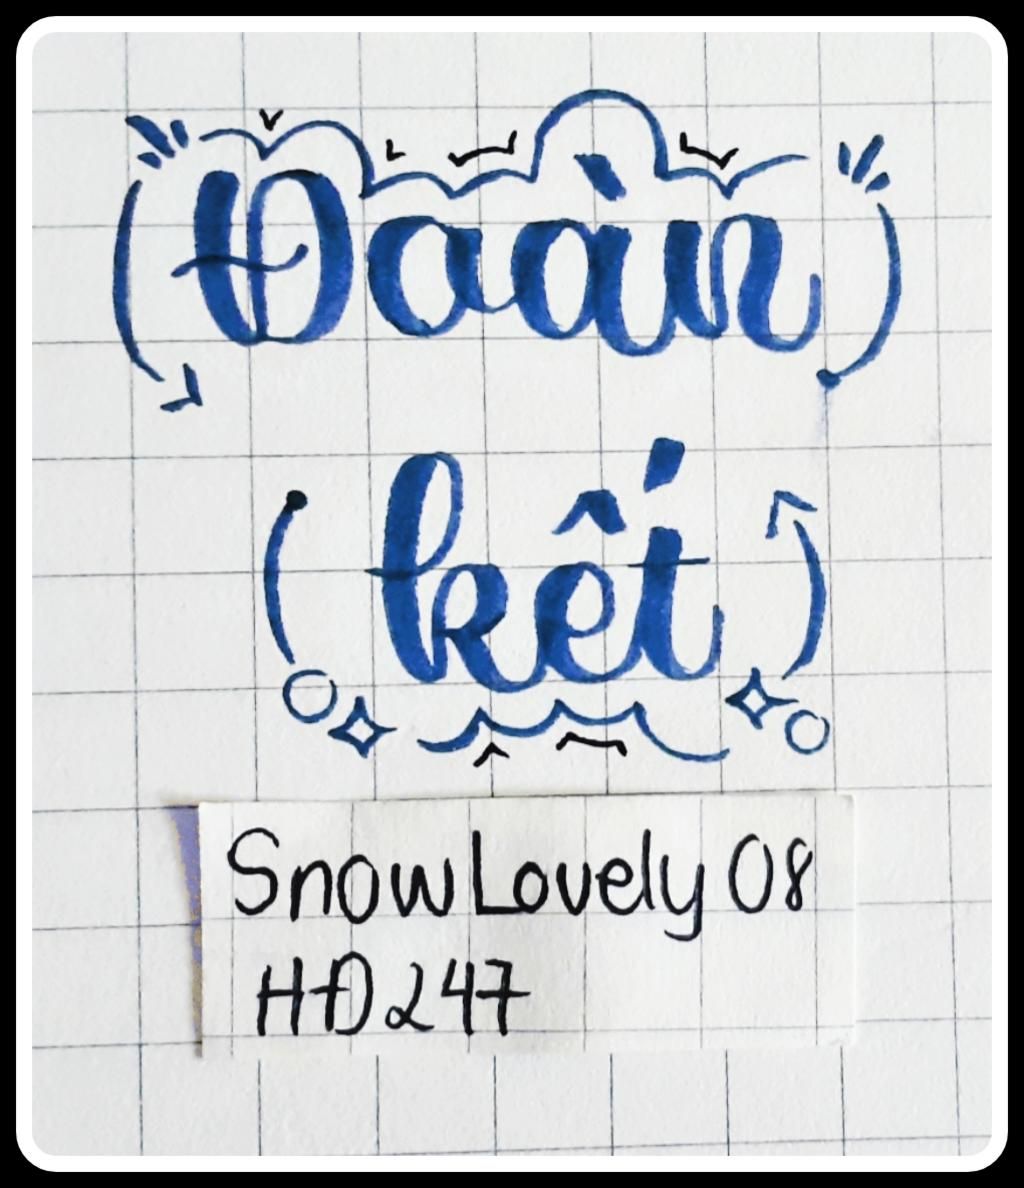 Đoàn
kết
SnowLovely 08
HĐ247